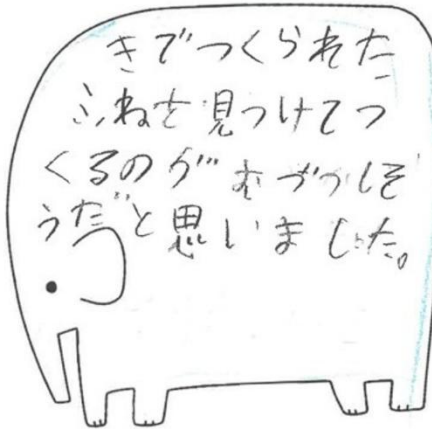 きでつくられた
ふねを見つけてつ
くるのがむづかしそ
うだと思いました。